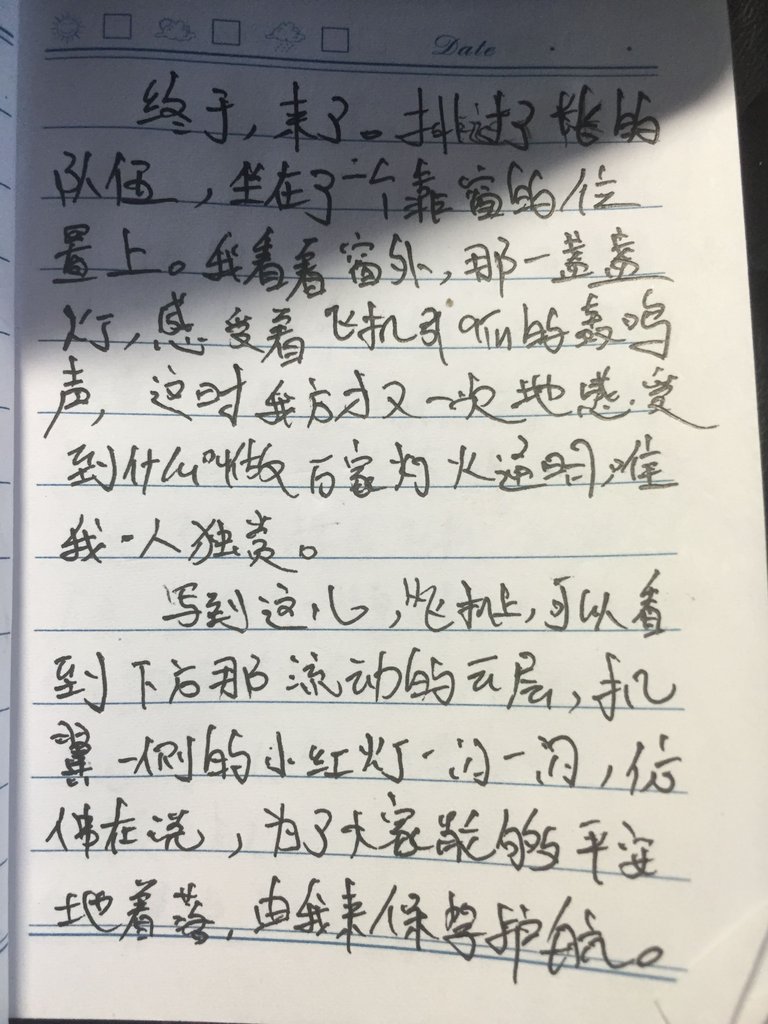 Date
终于,来了。排过了长长的
队伍,坐在了一个靠窗的位
置上。我看着窗外,那一盏盏
灯,感受着飞机引擎的轰鸣
声,这时我方才又一次地感受
到什么叫做百家灯火通明,唯
我一人独赏。
写到这儿,飞机上,可以看
到下方那流动的云层,机
翼一侧的小红灯一闪一闪,仿
佛在说,为了大家能够平安
地着落,由我来保驾护航。